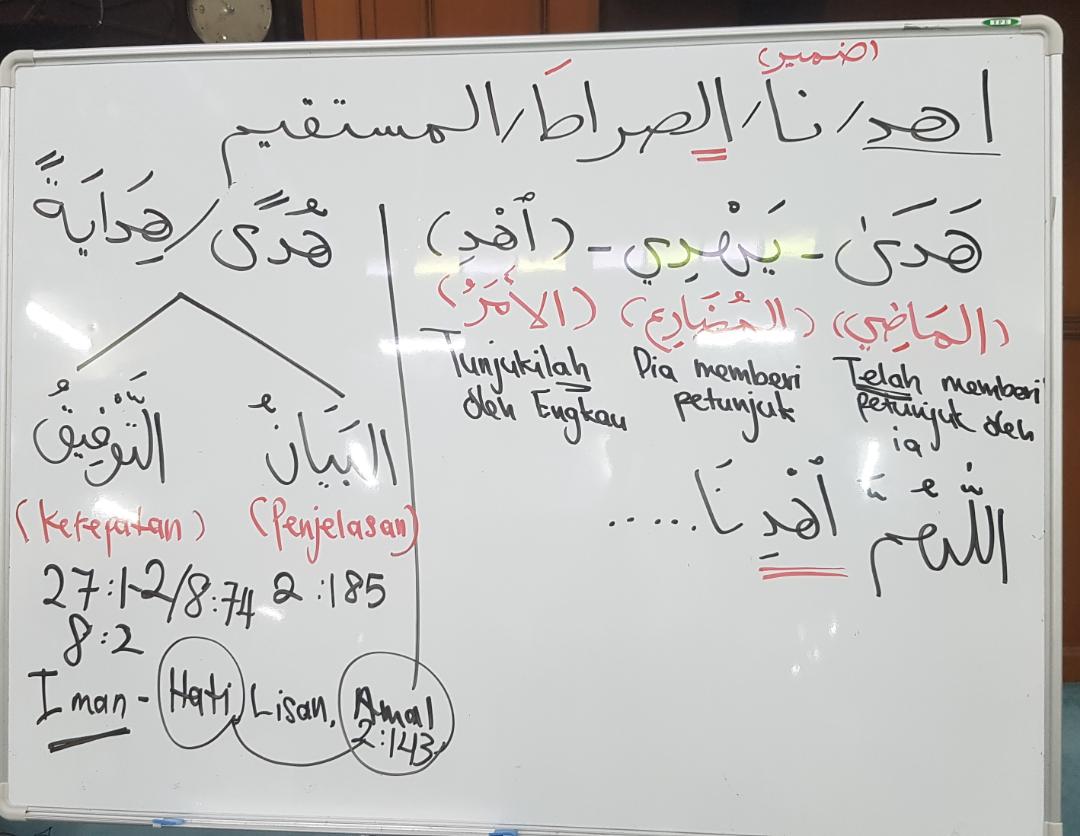 (ضمير)
اهد/نا/الصراطَ/المستقيم
هَدَىٰ - يَهْدِي - (أهْدِ)
(المَاضِي) (المُضَارِع) (الأَمَرُ)
Telah memberi petunjuk oleh ia
Dia memberi petunjuk
Tunjukilah oleh Engkau
اللّهُمَّ أهْدِنَا .....
هُدًى / هِدَايَةً
البَيَانُ
(Penjelasan)
2:185
التَّوْفِيقُ
(Ketepatan)
27:1-2/8:74
8:2
Iman - Hati, Lisan, Amal
2:143